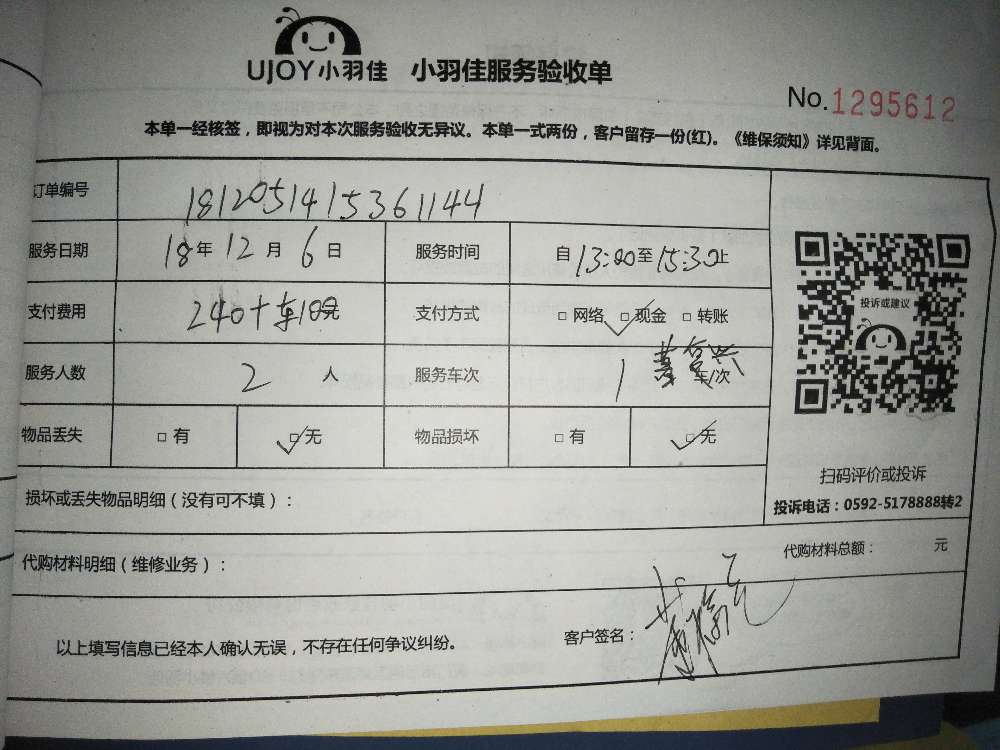 UJOY小羽佳 小羽佳服务验收单
No.1295612
本单一经核签，即视为对本次服务验收无异议。本单一式两份，客户留存一份(红)。《维保须知》详见背面。
订单编号 1812051415361144
服务日期 18年12月6日 服务时间 自13:00至15:30止
支付费用 240+车10元 支付方式 □网络 □现金 □转账
投诉或建议
服务人数 2人 服务车次 1 车/次
物品丢失 □有 □无 物品损坏 □有 □无
扫码评价或投诉
投诉电话：0592-5178888转2
损坏或丢失物品明细（没有可不填）：
代购材料明细（维修业务）： 代购材料总额： 元
以上填写信息已经本人确认无误，不存在任何争议纠纷。 客户签名：